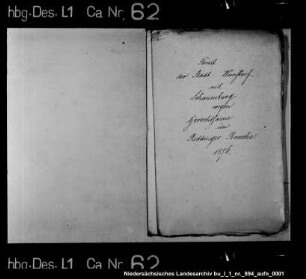 hbg-Des. L1 Ca Nr. 62
Streit
der Stadt Wunstorf
mit
Schaumburg
wegen
Gerechtsame
im
Bruche
hbg-Des. L1 Ca Nr. 62
Niedersächsisches Landesarchiv bu_l_1_nr_894_aufn_0001